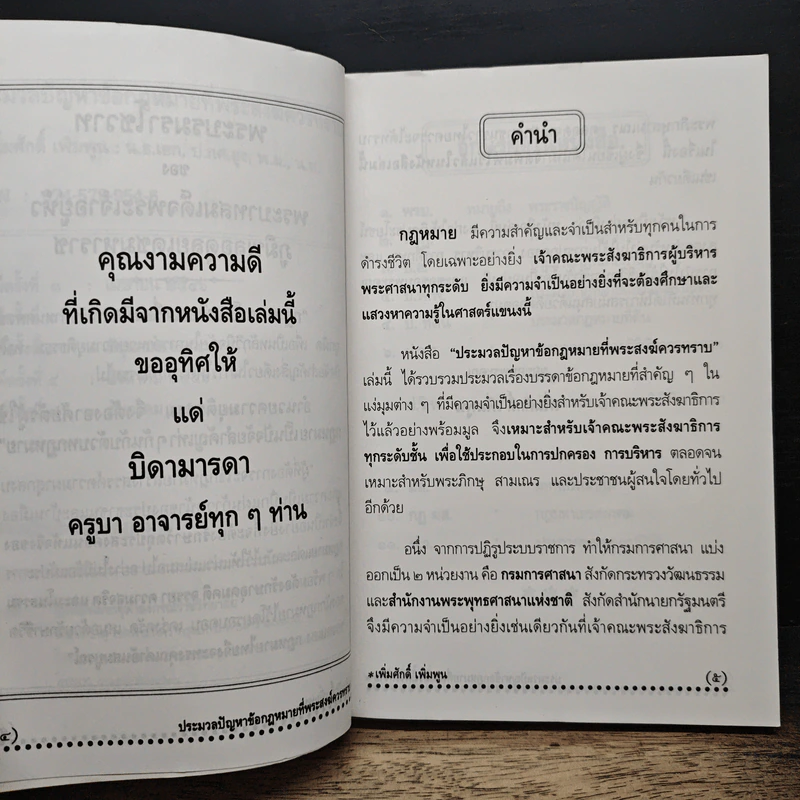 คุณงามความดี
ที่เกิดมีจากหนังสือเล่มนี้
ขออุทิศให้
แด่
บิดามารดา
ครูบา อาจารย์ทุก ๆ ท่าน
ประมวลปัญหาข้อกฎหมายที่พระสงฆ์ควรทราบ
คำนำ
กฎหมาย มีความสำคัญและจำเป็นสำหรับทุกคนในการ
ดำรงชีวิต โดยเฉพาะอย่างยิ่ง เจ้าคณะพระสังฆาธิการผู้บริหาร
พระศาสนาทุกระดับ ยิ่งมีความจำเป็นอย่างยิ่งที่จะต้องศึกษาและ
แสวงหาความรู้ในศาสตร์แขนงนี้
หนังสือ “ประมวลปัญหาข้อกฎหมายที่พระสงฆ์ควรทราบ”
เล่มนี้ ได้รวบรวมประมวลเรื่องบรรดาข้อกฎหมายที่สำคัญ ๆ ใน
แง่มุมต่าง ๆ ที่มีความจำเป็นอย่างยิ่งสำหรับเจ้าคณะพระสังฆาธิการ
ไว้แล้วอย่างพร้อมมูล จึงเหมาะสำหรับเจ้าคณะพระสังฆาธิการ
ทุกระดับชั้น เพื่อใช้ประกอบในการปกครอง การบริหาร ตลอดจน
เหมาะสำหรับพระภิกษุ สามเณร และประชาชนผู้สนใจโดยทั่วไป
อีกด้วย
อนึ่ง จากการปฏิรูประบบราชการ ทำให้กรมการศาสนา แบ่ง
ออกเป็น ๒ หน่วยงาน คือ กรมการศาสนา สังกัดกระทรวงวัฒนธรรม
และสำนักงานพระพุทธศาสนาแห่งชาติ สังกัดสำนักนายกรัฐมนตรี
จึงมีความจำเป็นอย่างยิ่งเช่นเดียวกันที่เจ้าคณะพระสังฆาธิการ
*เพิ่มศักดิ์ เพิ่มพูน (๕)